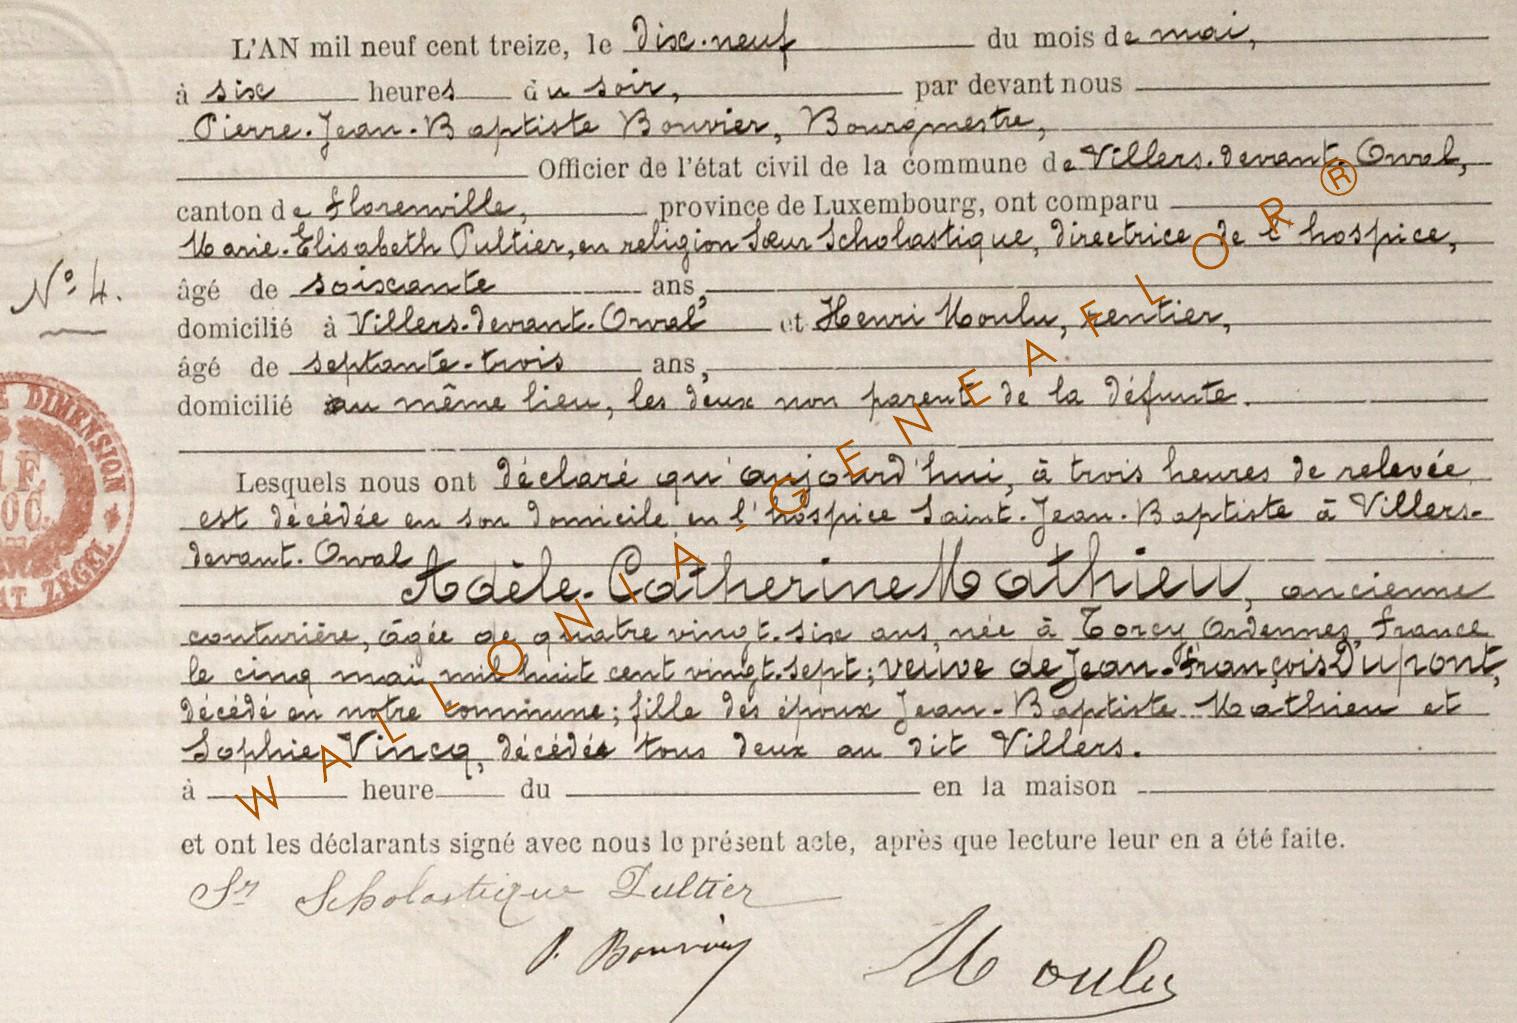 L'AN mil neuf cent treize, le dix-neuf du mois de mai,
à six heures du soir, par devant nous
Pierre-Jean-Baptiste Bouvier, Bourgmestre,
Officier de l'état civil de la commune de Villers-devant-Orval,
canton de Florenville, province de Luxembourg, ont comparu
Marie-Elisabeth Pultier, en religion Sœur Scholastique, directrice de l'hospice,
N° 4.
âgé de soixante ans,
domicilié à Villers-devant-Orval et Henri Moulu, rentier,
âgé de septante-trois ans,
domicilié au même lieu, les deux non parents de la défunte.
Lesquels nous ont déclaré qu'aujourd'hui, à trois heures de relevée
est décédée en son domicile en l'hospice Saint-Jean-Baptiste à Villers-
devant-Orval
Adèle-Catherine Mathieu, ancienne
couturière, âgée de quatre vingt-six ans, née à Torcy, Ardennes, France
le cinq mai mil huit cent vingt-sept; veuve de Jean-François Dupont,
décédé en notre commune; fille des époux Jean-Baptiste Mathieu et
Sophie Vincq, décédés tous deux au dit Villers.
à heure du en la maison
et ont les déclarants signé avec nous le présent acte, après que lecture leur en a été faite.
Sr Scholastique Pultier
P. Bouvier
Moulu
DIMENSION
ZEGEL
WALLONIA-GENEAFLOR ®